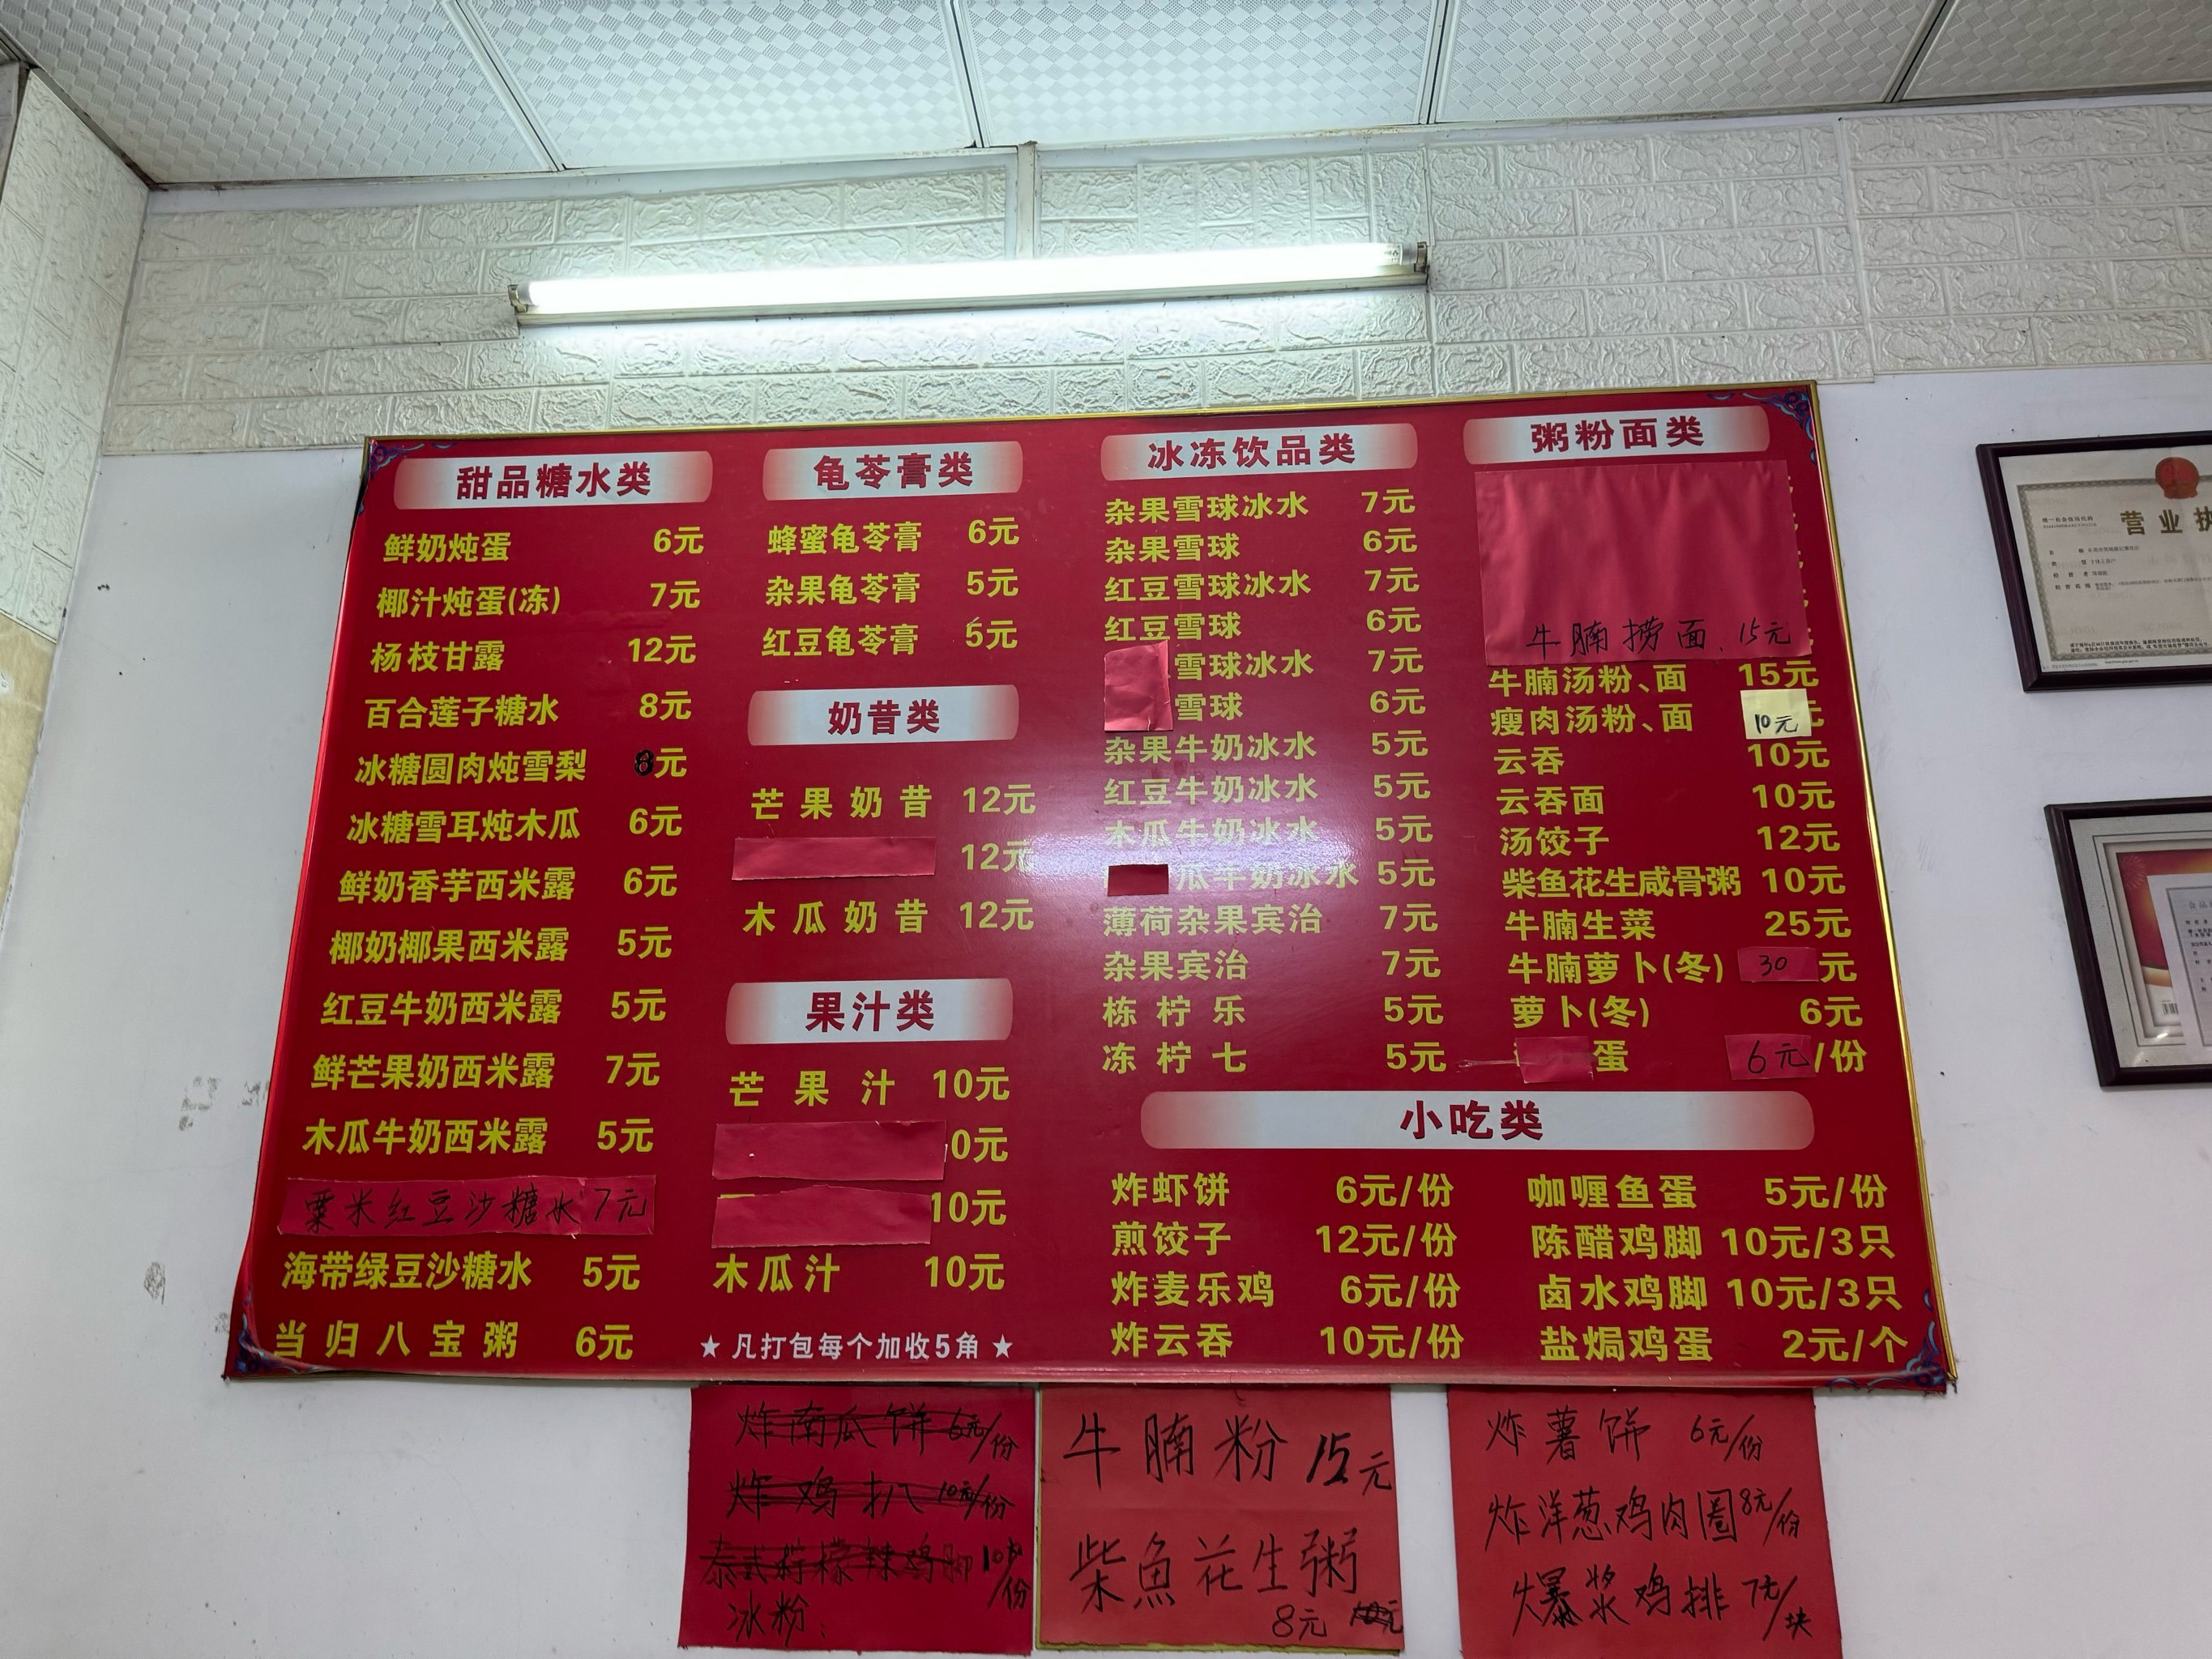 甜品糖水类
鲜奶炖蛋 6元
椰汁炖蛋(冻) 7元
杨枝甘露 12元
百合莲子糖水 8元
冰糖圆肉炖雪梨 8元
冰糖雪耳炖木瓜 6元
鲜奶香芋西米露 6元
椰奶椰果西米露 5元
红豆牛奶西米露 5元
鲜芒果奶西米露 7元
木瓜牛奶西米露 5元
粟米红豆沙糖水 7元
海带绿豆沙糖水 5元
当归八宝粥 6元
龟苓膏类
蜂蜜龟苓膏 6元
杂果龟苓膏 5元
红豆龟苓膏 5元
奶昔类
芒果奶昔 12元
12元
木瓜奶昔 12元
果汁类
芒果汁 10元
0元
10元
木瓜汁 10元
★ 凡打包每个加收5角 ★
冰冻饮品类
杂果雪球冰水 7元
杂果雪球 6元
红豆雪球冰水 7元
红豆雪球 6元
雪球冰水 7元
雪球 6元
杂果牛奶冰水 5元
红豆牛奶冰水 5元
木瓜牛奶冰水 5元
瓜牛奶冰水 5元
薄荷杂果宾治 7元
杂果宾治 7元
栋柠乐 5元
冻柠七 5元
粥粉面类
牛腩捞面 15元
牛腩汤粉、面 15元
瘦肉汤粉、面 10元
云吞 10元
云吞面 10元
汤饺子 12元
柴鱼花生咸骨粥 10元
牛腩生菜 25元
牛腩萝卜(冬) 30元
萝卜(冬) 6元
蛋 6元/份
小吃类
炸虾饼 6元/份
煎饺子 12元/份
炸麦乐鸡 6元/份
炸云吞 10元/份
咖喱鱼蛋 5元/份
陈醋鸡脚 10元/3只
卤水鸡脚 10元/3只
盐焗鸡蛋 2元/个
炸南瓜饼 6元/份
炸鸡扒 10元/份
泰式柠檬辣鸡脚 10元/份
冰粉:
牛腩粉 15元
柴魚花生粥
8元 10元
炸薯饼 6元/份
炸洋葱鸡肉圈 8元/份
爆浆鸡排 7元/块
营业执